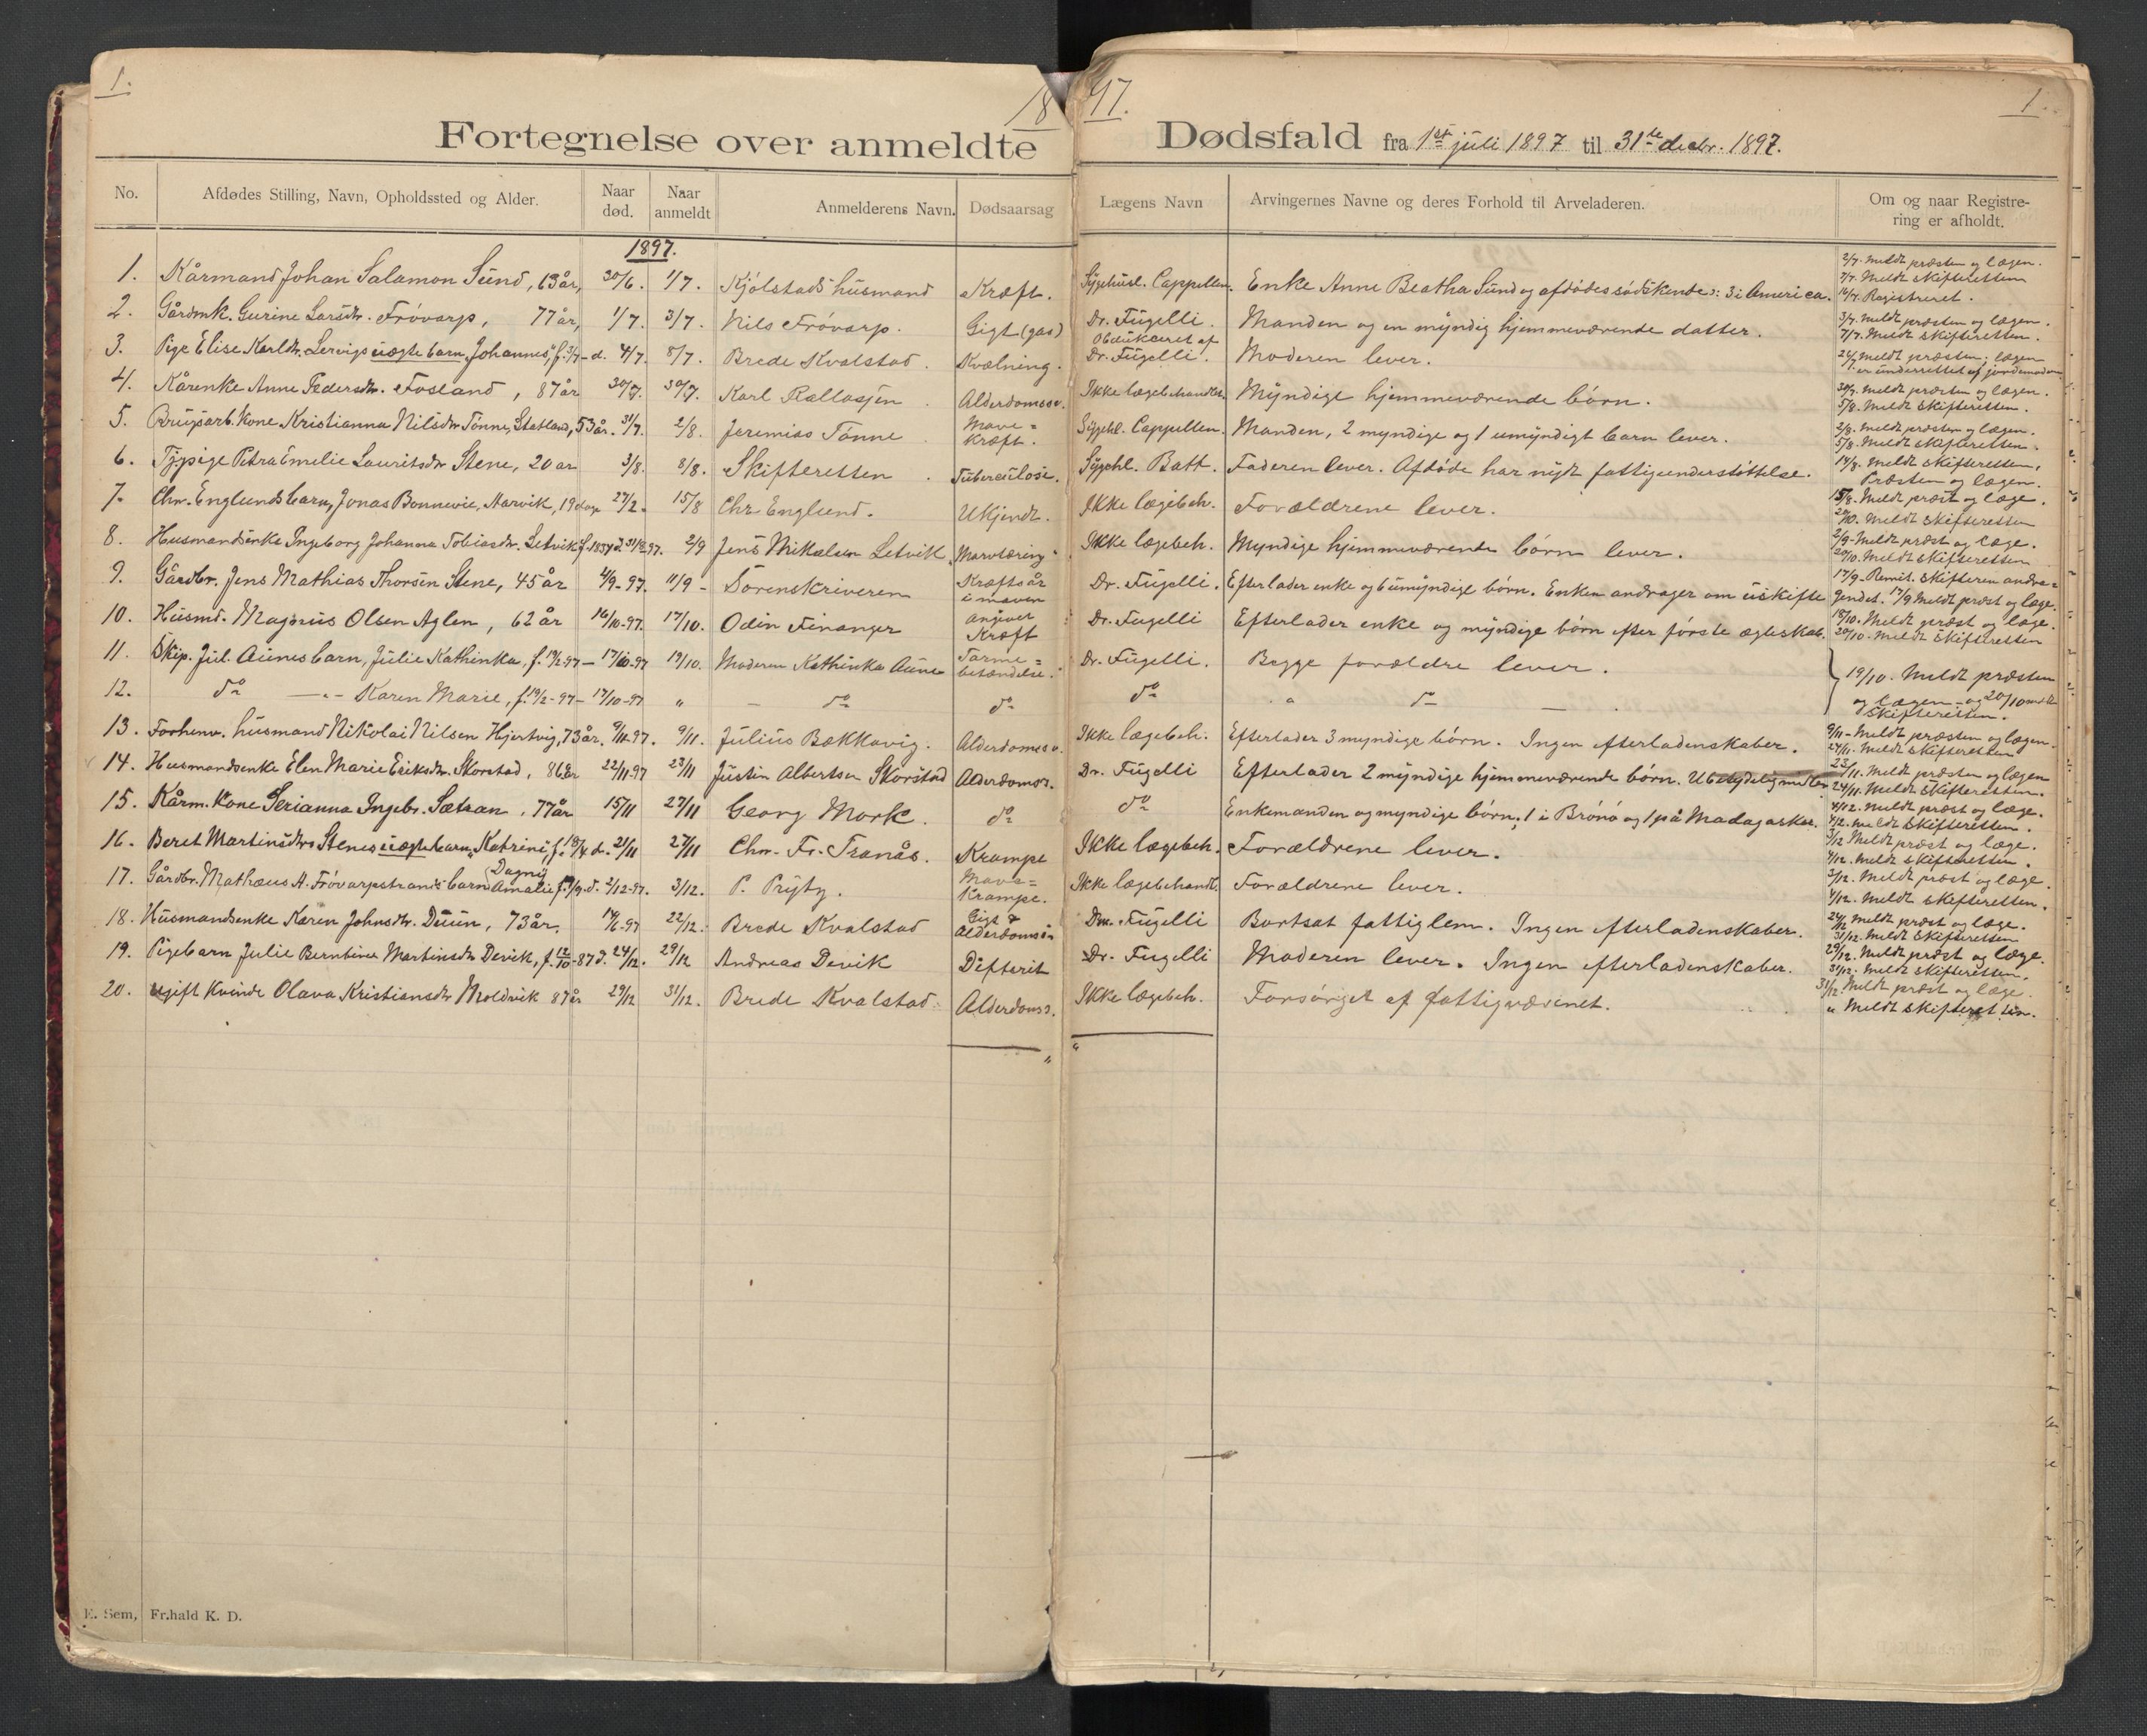 1.
18 97.
1
Fortegnelse over anmeldte Dødsfald fra 1ste juli 1897 til 31te decbr. 1897.
No. | Afdødes Stilling, Navn, Opholdssted og Alder. | Naar død. | Naar anmeldt | Anmelderens Navn. | Dødsaarsag | Lægens Navn | Arvingernes Navne og deres Forhold til Arveladeren. | Om og naar Registrering er afholdt.
1897.
1. Kårmand Johan Salamon Sund, 63 år, 30/6. 1/7. Kjølstads husmand Kræft. Sygehusl. Cappellen. Enke Anne Beatha Sund og afdødes södskende: 3 i America. 2/7. Meldt præsten og lægen. 7/7. Meldt skifteretten 14/7. Registreret.
2. Gårdmk. Gurine Larsdtr. Fróvarp, 77 år, 1/7. 3/7. Nils Fróvarp. Gigt (gas) Dr. Fugelli. Manden og en myndig hjemmeværende datter. 3/7. meldt præsten og lægen. 7/7. Meldt skifteretten.
3. Pige Elise Karldtr. Lervigs uægte barn, Johannes, f. d. 4/7. 8/7. Brede Kvalstad Kvælning. Obduceret af Dr. Fugelli. Moderen lever. meldt præsten; lægen er underrettet af jordemoderen
4. Kårenke Anne Pedersdtr. Fosland, 87 år 30/7. 30/7. Karl Rallasjen Alderdomssv. Ikke lægebehandlet. Myndige hjemmeværende börn. 30/7. meldt præsten og lægen. 5/8. Meldt skifteretten.
5. Brugsarb. kone Kristianna Nilsdtr Tønne, Statland, 53 år. 31/7. 2/8. Jeremias Tönne Mave= kræft. Sygehl. Cappellen. Manden, 2 myndige og 1 umyndigt barn lever. 2/8. meldt præsten og lægen. 5/8. Meldt skifteretten.
6. Tjpige Petra Emelie Lauritsdtr Stene, 20 år 3/8. 8/8. Skifteretten Tuberculose. Sygehl. Batt. Faderen lever. Afdöde har nydt fattigunderstöttelse. 14/8. Meldt skifteretten, Præsten og lægen.
7. Chr. Englunds barn, Jonas Bonnevie, Aarvik, 19 dage 27/2. 15/8 Chr. Englund. Ukjendt. Ikke lægebeh. Forældrene lever. 15/8. Meldt præst og læge. 20/10. Meldt skifteretten
8. Husmandsenke Ingeborg Johanna Tobiasdtr. Setvik f. 1834 d. 97. 2/9 Jens Mikalsen Setvik Marvtæring Ikke lægebeh. Myndige hjemmeværende börn lever. 2/9 Meldt præst og læge. 20/10. Meldt skifteretten
9. Gårdbr. Jens Mathias Thorsen Stene, 45 år 4/9-97. 11/9 - Sorenskriveren Kræftsår i maven Dr. Fugelli. Efterlader enke og 6 umyndige börn. Enken andrager om uskifte 17/9. Remit. skifteren andragendet. 17/9 Meldt præst og læge.
10. Husmd. Magnus Olsen Aglen, 62 år 16/10-97. 17/10. Odin Finanger angiver Kræft Dr. Fugelli Efterlader enke og myndige börn efter förste ægteskab. 18/10. Meldt præst og læge. 20/10. Meldt skifteretten
11. Skip. Jul. Aunes barn, Julie Kathinka, f. 19/2-97 - 17/10-97 19/10. Moderen Kathinka Aune Tarme= betændelse. Dr. Fugelli. Begge forældre lever. 19/10. Meldt præsten og lægen og 20/10 meldt skifteretten.
12. do - Karen Marie, f. 19/2-97 - 17/10-97 " - do do do " do
13. Forhenv. husmand Nikolai Nilsen Hjertvig, 73 år. 9/11-97. 9/11. Julius Bakkavig. Alderdomssv. Ikke lægebeh. Efterlader 3 myndige börn. Ingen efterladenskaber. 9/11 - Meldt præsten og lægen. 24/11. Meldt skifteretten
14. Husmandsenke Elen Marie Eriksdtr. Skorstad, 86 år 22/11-97 23/11 Justin Albertsen Skorstad Alderdoms. Dr. Fugelli Efterlader 2 myndige hjemmeværende börn. Ubetydelig midler. 23/11. Meldt præsten og lægen 24/11. Meldt skifteretten.
15. Kårm. kone Serianna Ingebr. Sætran, 77 år 15/11 27/11 Georg Mork. do do Enkemanden og myndige börn; 1 i Brönö og 1 på Madagaskar. 4/12. meldt præst og læge. 4/12. meldt skifteretten.
16. Beret Martinsdtrs Stenes uægte barn, Katrine, f. 18/4 d. 21/11 27/11 Chr. Fr. Tranås. Krampe Ikke lægebeh. Forældrene lever. 3/12 Meldt præst og læge. 4/12. Meldt skifteretten.
17. Gårdbr. Mathæus A. Fróvarpstrands barn Dagny Amalie, f. d. 2/12-97. 3/12. P. Pryty. Mave= Krampe. Ikke lægebehandlt. Forældrene lever. 3/12. Meldt præst og læge. 4/12. Meldt skifteretten.
18. Husmandsenke Karen Johnsdtr. Duun, 73 år, 14/6-97 22/12. Brede Kvalstad Gigt & Alderdomssv Dr. Fugelli Bortsat fattiglem. Ingen efterladenskaber. 24/12 meldt præst og læge. 31/12. Meldt skifteretten
19. Pigebarn Julie Berntine Martinsdtr Devik, f. 12/10-87 d. 24/12. 29/12 Andreas Devik Difterit Dr. Fugelli Moderen lever. Ingen efterladenskaber. 29/12. Meldt præst og læge. 31/12. Meldt skifteretten.
20. ugift kvinde Olava Kristiansdtr Moldvik 87 år 29/12 31/12. Brede Kvalstad. Alderdoms. Ikke lægebeh. Forsörget af fattigvæsenet. 31/12. Meldt præst og læge. " Meldt skifteretten.
E. Sem, Fr.hald K. D.